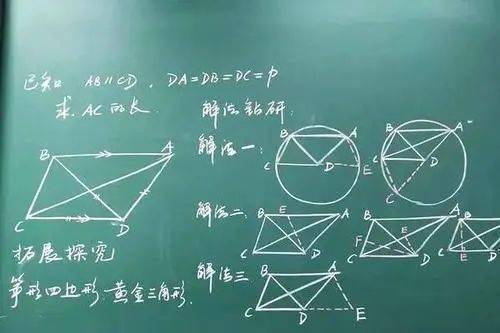 已知: AB∥CD, DA=DB=DC=p
求 AC 的长.
解法钻研:
解法一:
B A
C D
B A
C D E
B A
C D
C
解法二:
B E A
C D
B A
F E
C D
B
C E
解法三
B A
C D E
拓展探究
筝形四边形 黄金三角形.